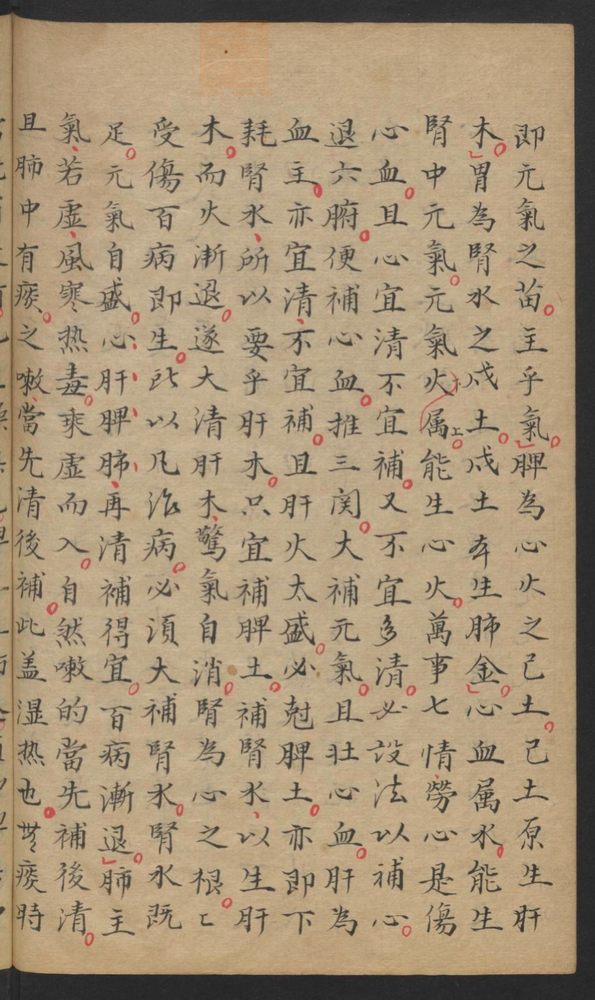 即元氣之苗主乎氣脾為心火之己土己土原生肝
木胃為腎水之戊土戊土本生肺金心血属水能生
腎中元氣元氣火属上能生心火萬事七情勞心是傷
心血且心宜清不宜補又不宜多清必設法以補心
退六腑便補心血推三関大補元氣且壮心血肝為
血主亦宜清不宜補且肝火太盛必尅脾土亦即下
耗腎水所以要乎肝木只宜補脾土補腎水以生肝
木而火漸退遂大清肝木驚氣自消腎為心之根〻
受傷百病即生此以凡治病必須大補腎水腎水既
足元氣自盛心肝脾肺再清補得宜百病漸退肺主
氣若虚風寒热毒乘虚而入自然嗽的當先補後清
且肺中有痰之嗽當先清後補此盖湿热也無痰時